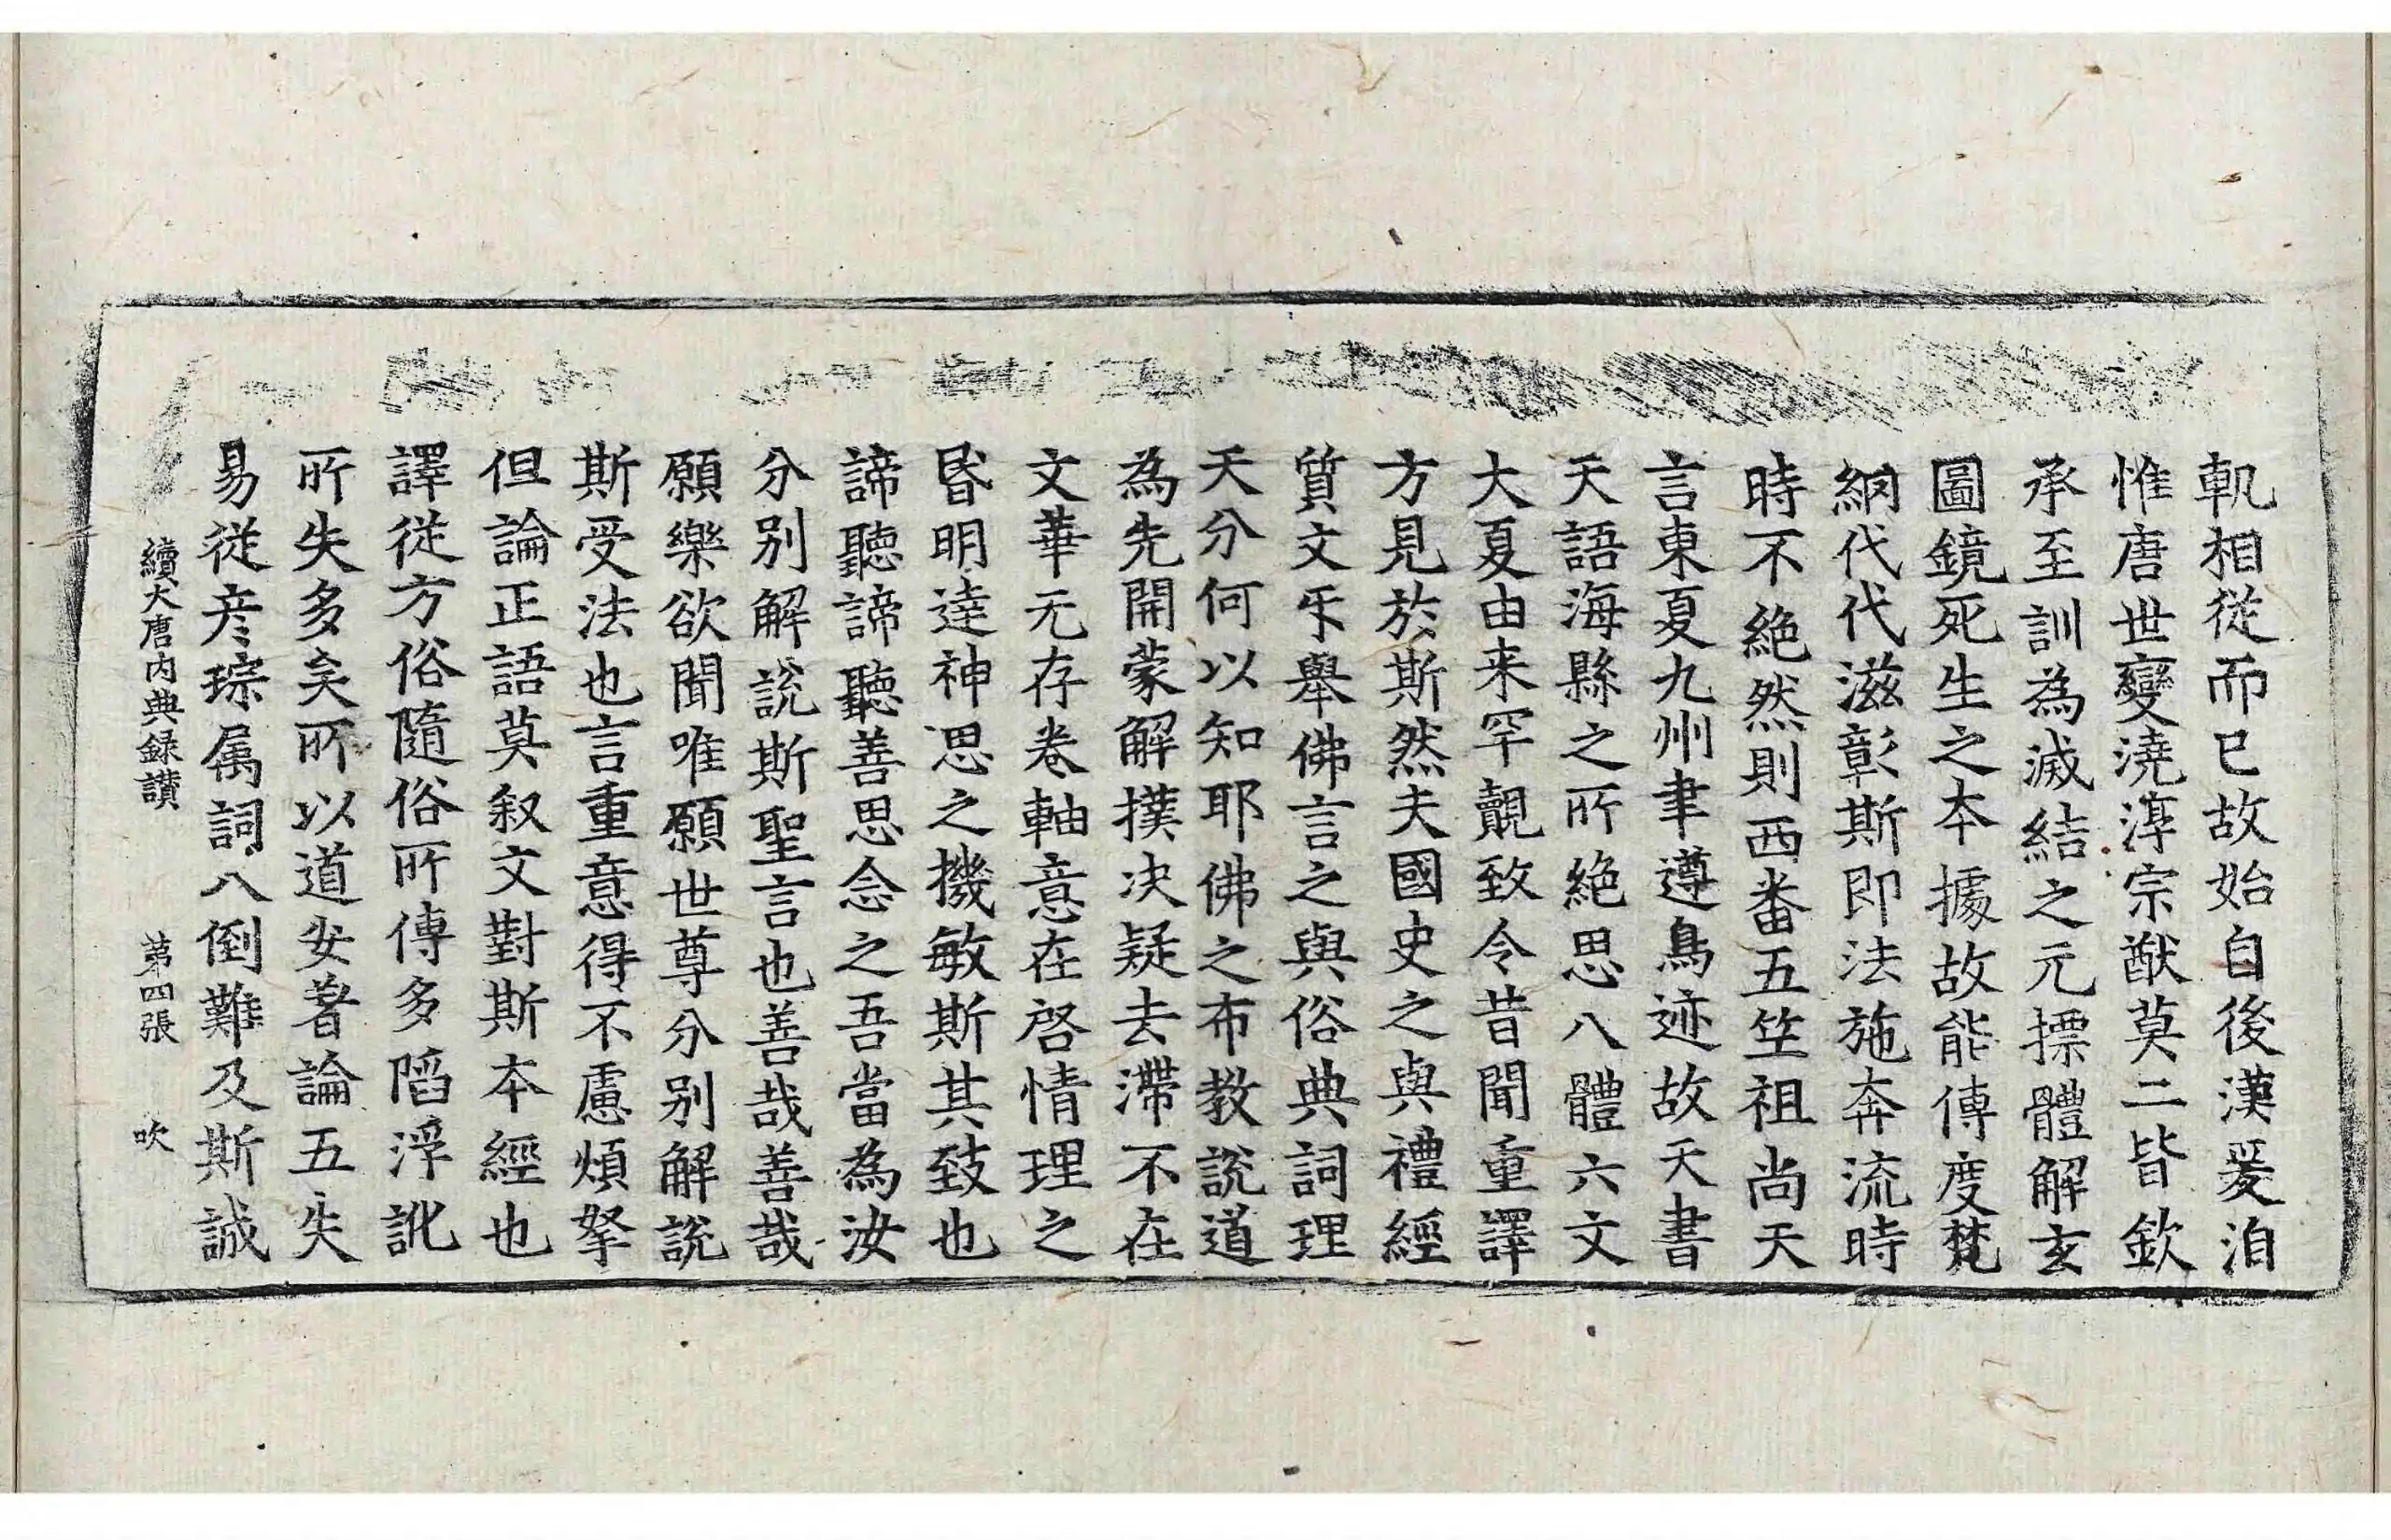 軓相從而已故始自後漢爰洎
惟唐世變澆淳宗猷莫二皆欽
承至訓為滅結之元摽體解玄
圖鏡死生之本據故能傳度梵
網代代滋彰斯即法施奔流時
時不絶然則西畨五笁祖尚天
言東夏九州聿遵鳥迹故天書
天語海縣之所絶思八體六文
大夏由来罕覿致令昔聞重譯
方見於斯然夫國史之與禮經
質文㸦舉佛言之與俗典詞理
天分何以知耶佛之布教說道
為先開蒙解撲决疑去滯不在
文華无存卷軸意在啓情理之
昏明達神思之機敏斯其致也
諦聽諦聽善思念之吾當為汝
分别解說斯聖言也善哉善哉
願樂欲聞唯願世尊分别解說
斯受法也言重意得不慮煩拏
但論正語莫叙文對斯本經也
譯從方俗隨俗所傳多䧟浮訛
所失多矣所以道安著論五失
易從彦琮属詞八倒難及斯誠
續大唐内典録讃　第四張　吹